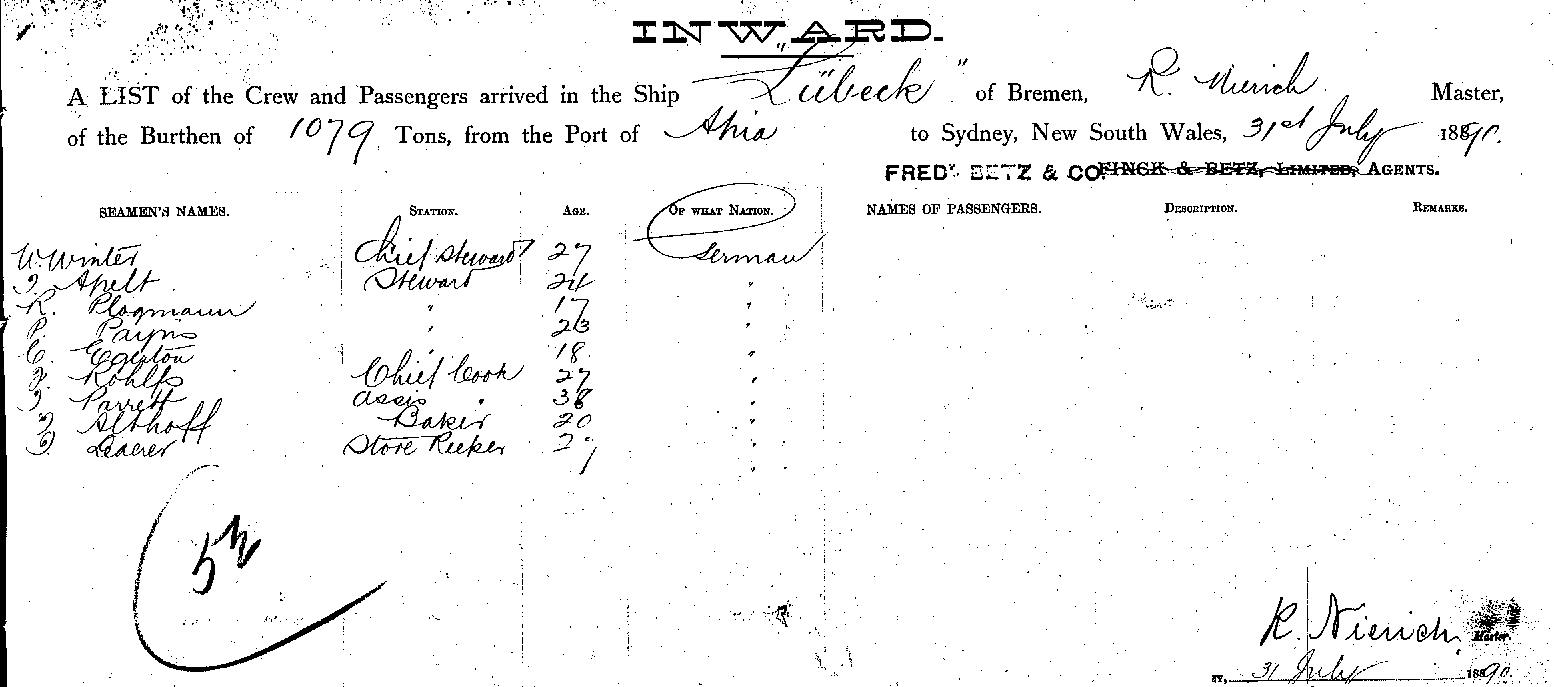 INWARD.
A LIST of the Crew and Passengers arrived in the Ship "Lübeck" of Bremen, R. Nierich Master,
of the Burthen of 1079 Tons, from the Port of Apia to Sydney, New South Wales, 31st July 1890.
FREDK. BETZ & CO. FINCK & BETZ, LIMITED, AGENTS.
SEAMEN'S NAMES. STATION. AGE. OF WHAT NATION. NAMES OF PASSENGERS. DESCRIPTION. REMARKS.
W. Winter Chief Steward 27 German
Apelt Steward 24 "
R. Plogmann " 17 "
P. " 23 "
E. Egerton " 18 "
Rohlfs Chief Cook 27 "
Parrett Assis " 38 "
Althoff Baker 20 "
Store Keeper 29 "
R. Nierich Master.
31 July 1890.